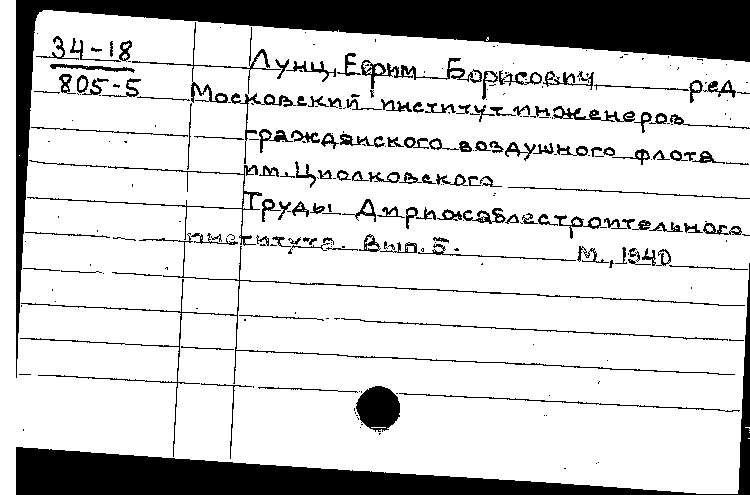 34-18
805-5
Лунц, Ефрим Борисович ред
Московский институт инженеров
гражданского воздушного флота
им. Циолковского
Труды Дирижаблестроительного
института. Вып. 5. М., 1940